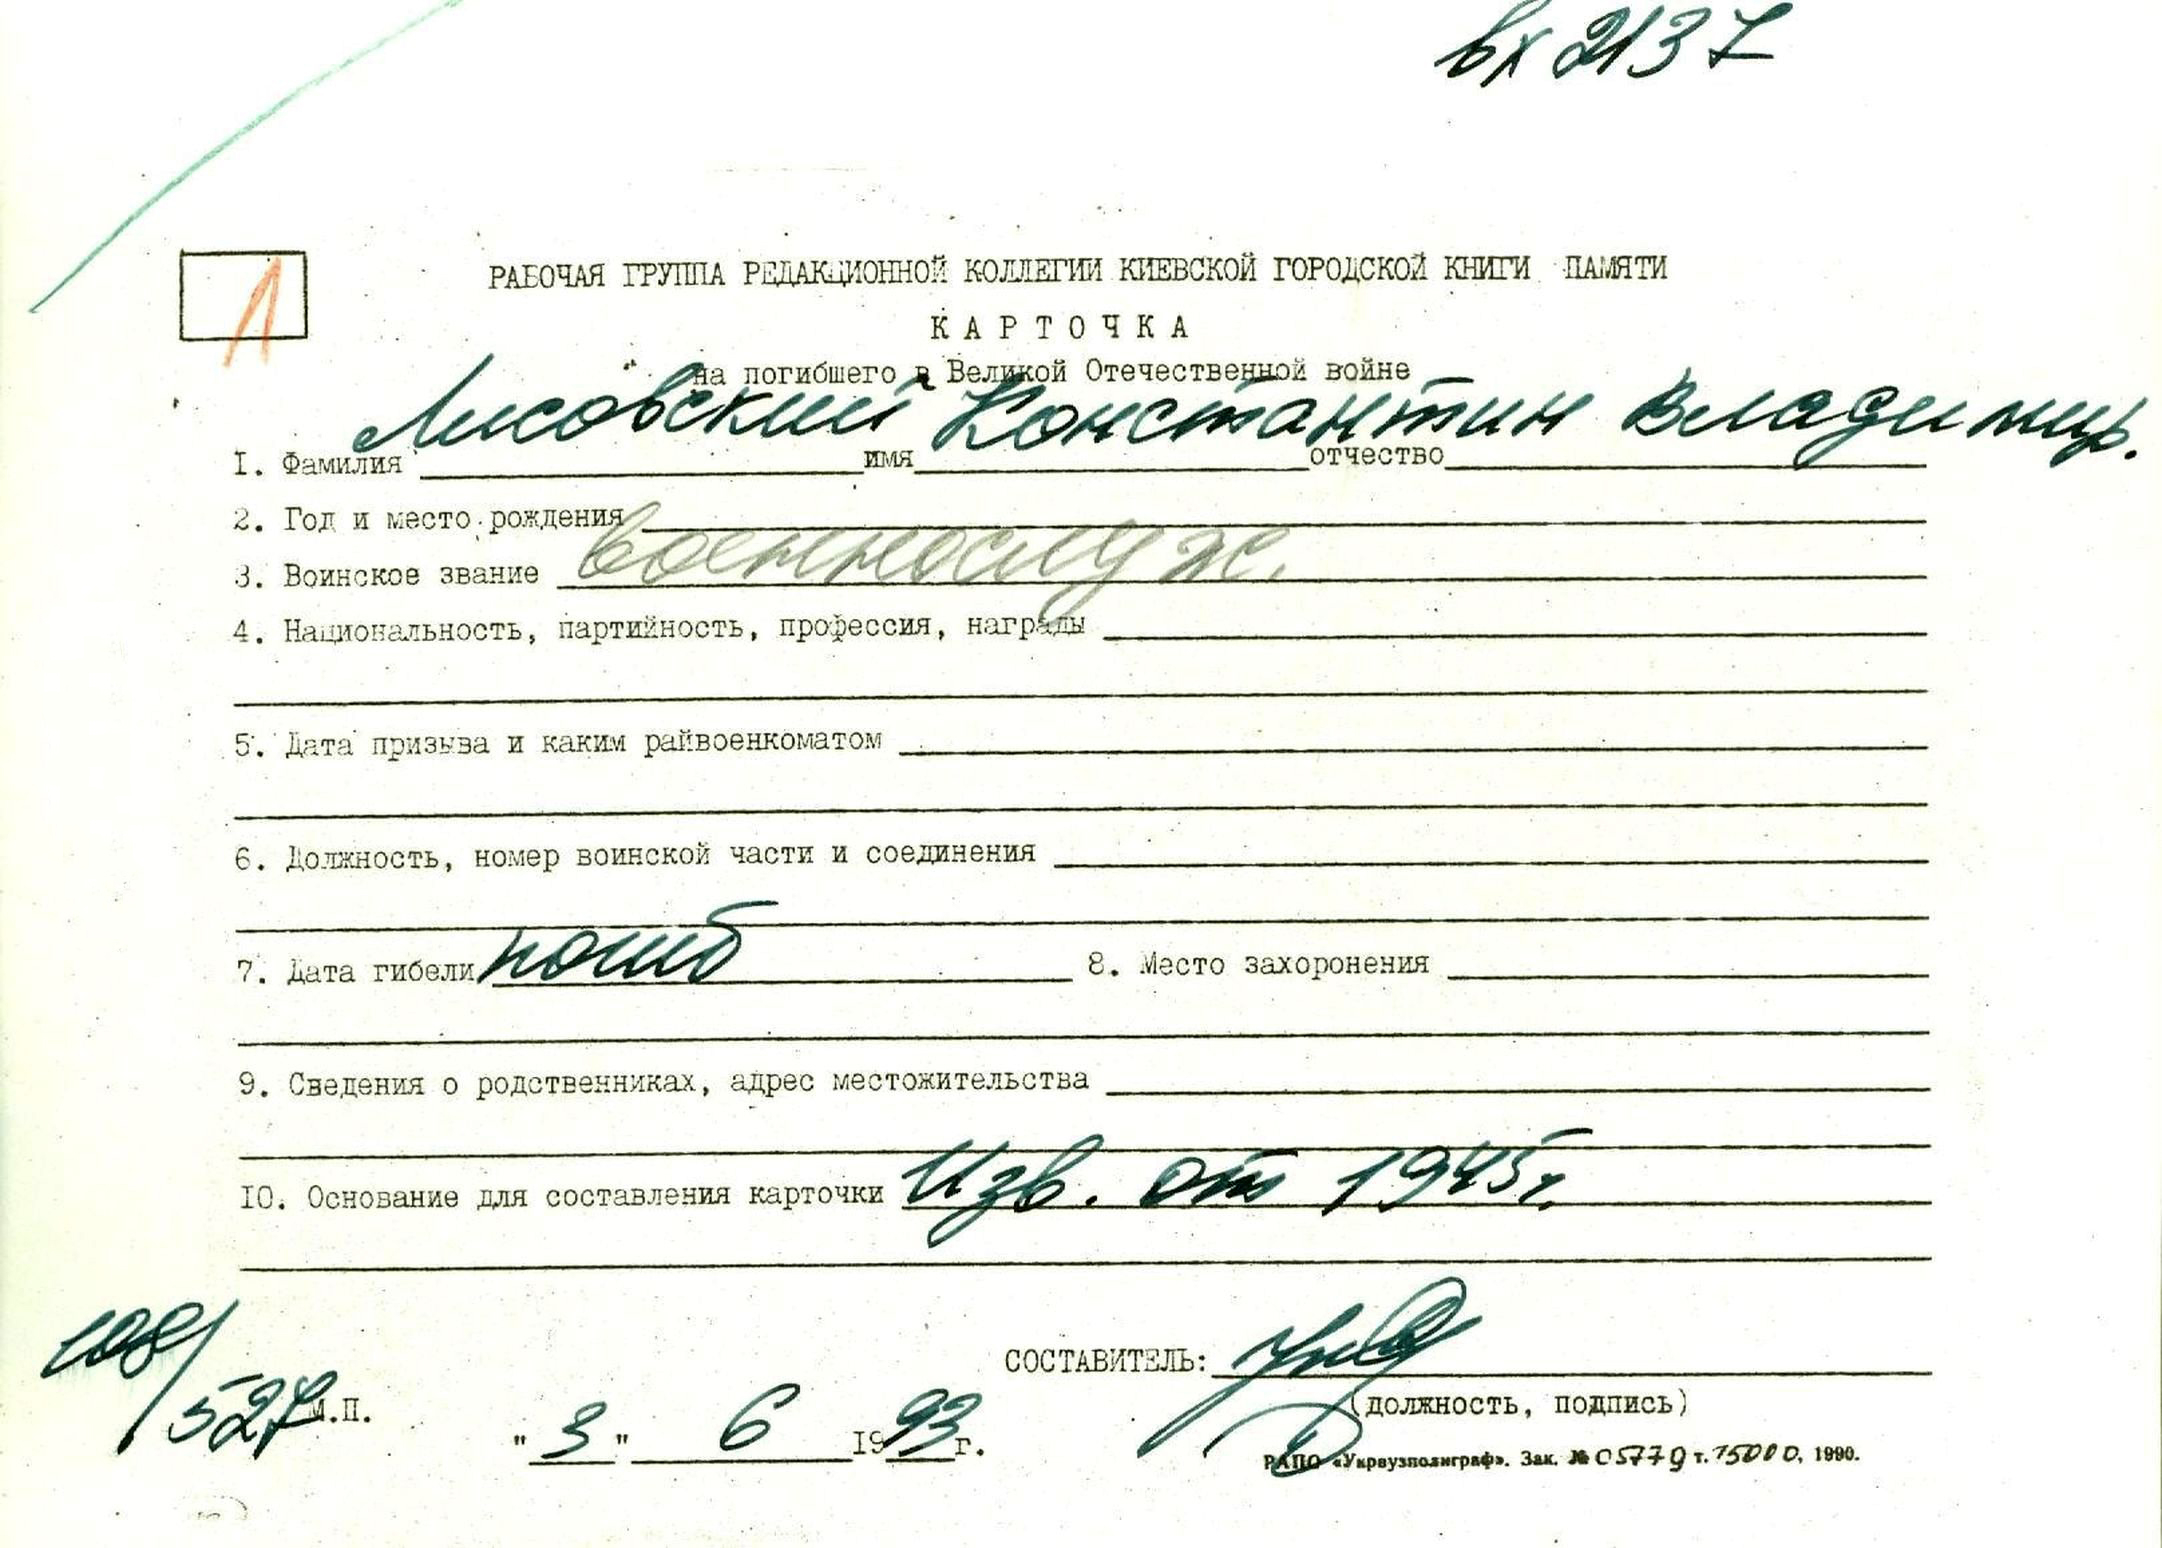 вх 2137
1
РАБОЧАЯ ГРУППА РЕДАКЦИОННОЙ КОЛЛЕГИИ КИЕВСКОЙ ГОРОДСКОЙ КНИГИ ПАМЯТИ
КАРТОЧКА
на погибшего в Великой Отечественной войне
1. Фамилия Лисовский имя Константин отчество Владимир.
2. Год и место рождения
3. Воинское звание военнослуж.
4. Национальность, партийность, профессия, награды
5. Дата призыва и каким райвоенкоматом
6. Должность, номер воинской части и соединения
7. Дата гибели погиб 8. Место захоронения
9. Сведения о родственниках, адрес местожительства
10. Основание для составления карточки Изв. от 1945г.
108/527
СОСТАВИТЕЛЬ:
М.П. (должность, подпись)
"3" 6 1993г.
РАПО «Укрвузполиграф». Зак. № 05779 т. 15000, 1990.